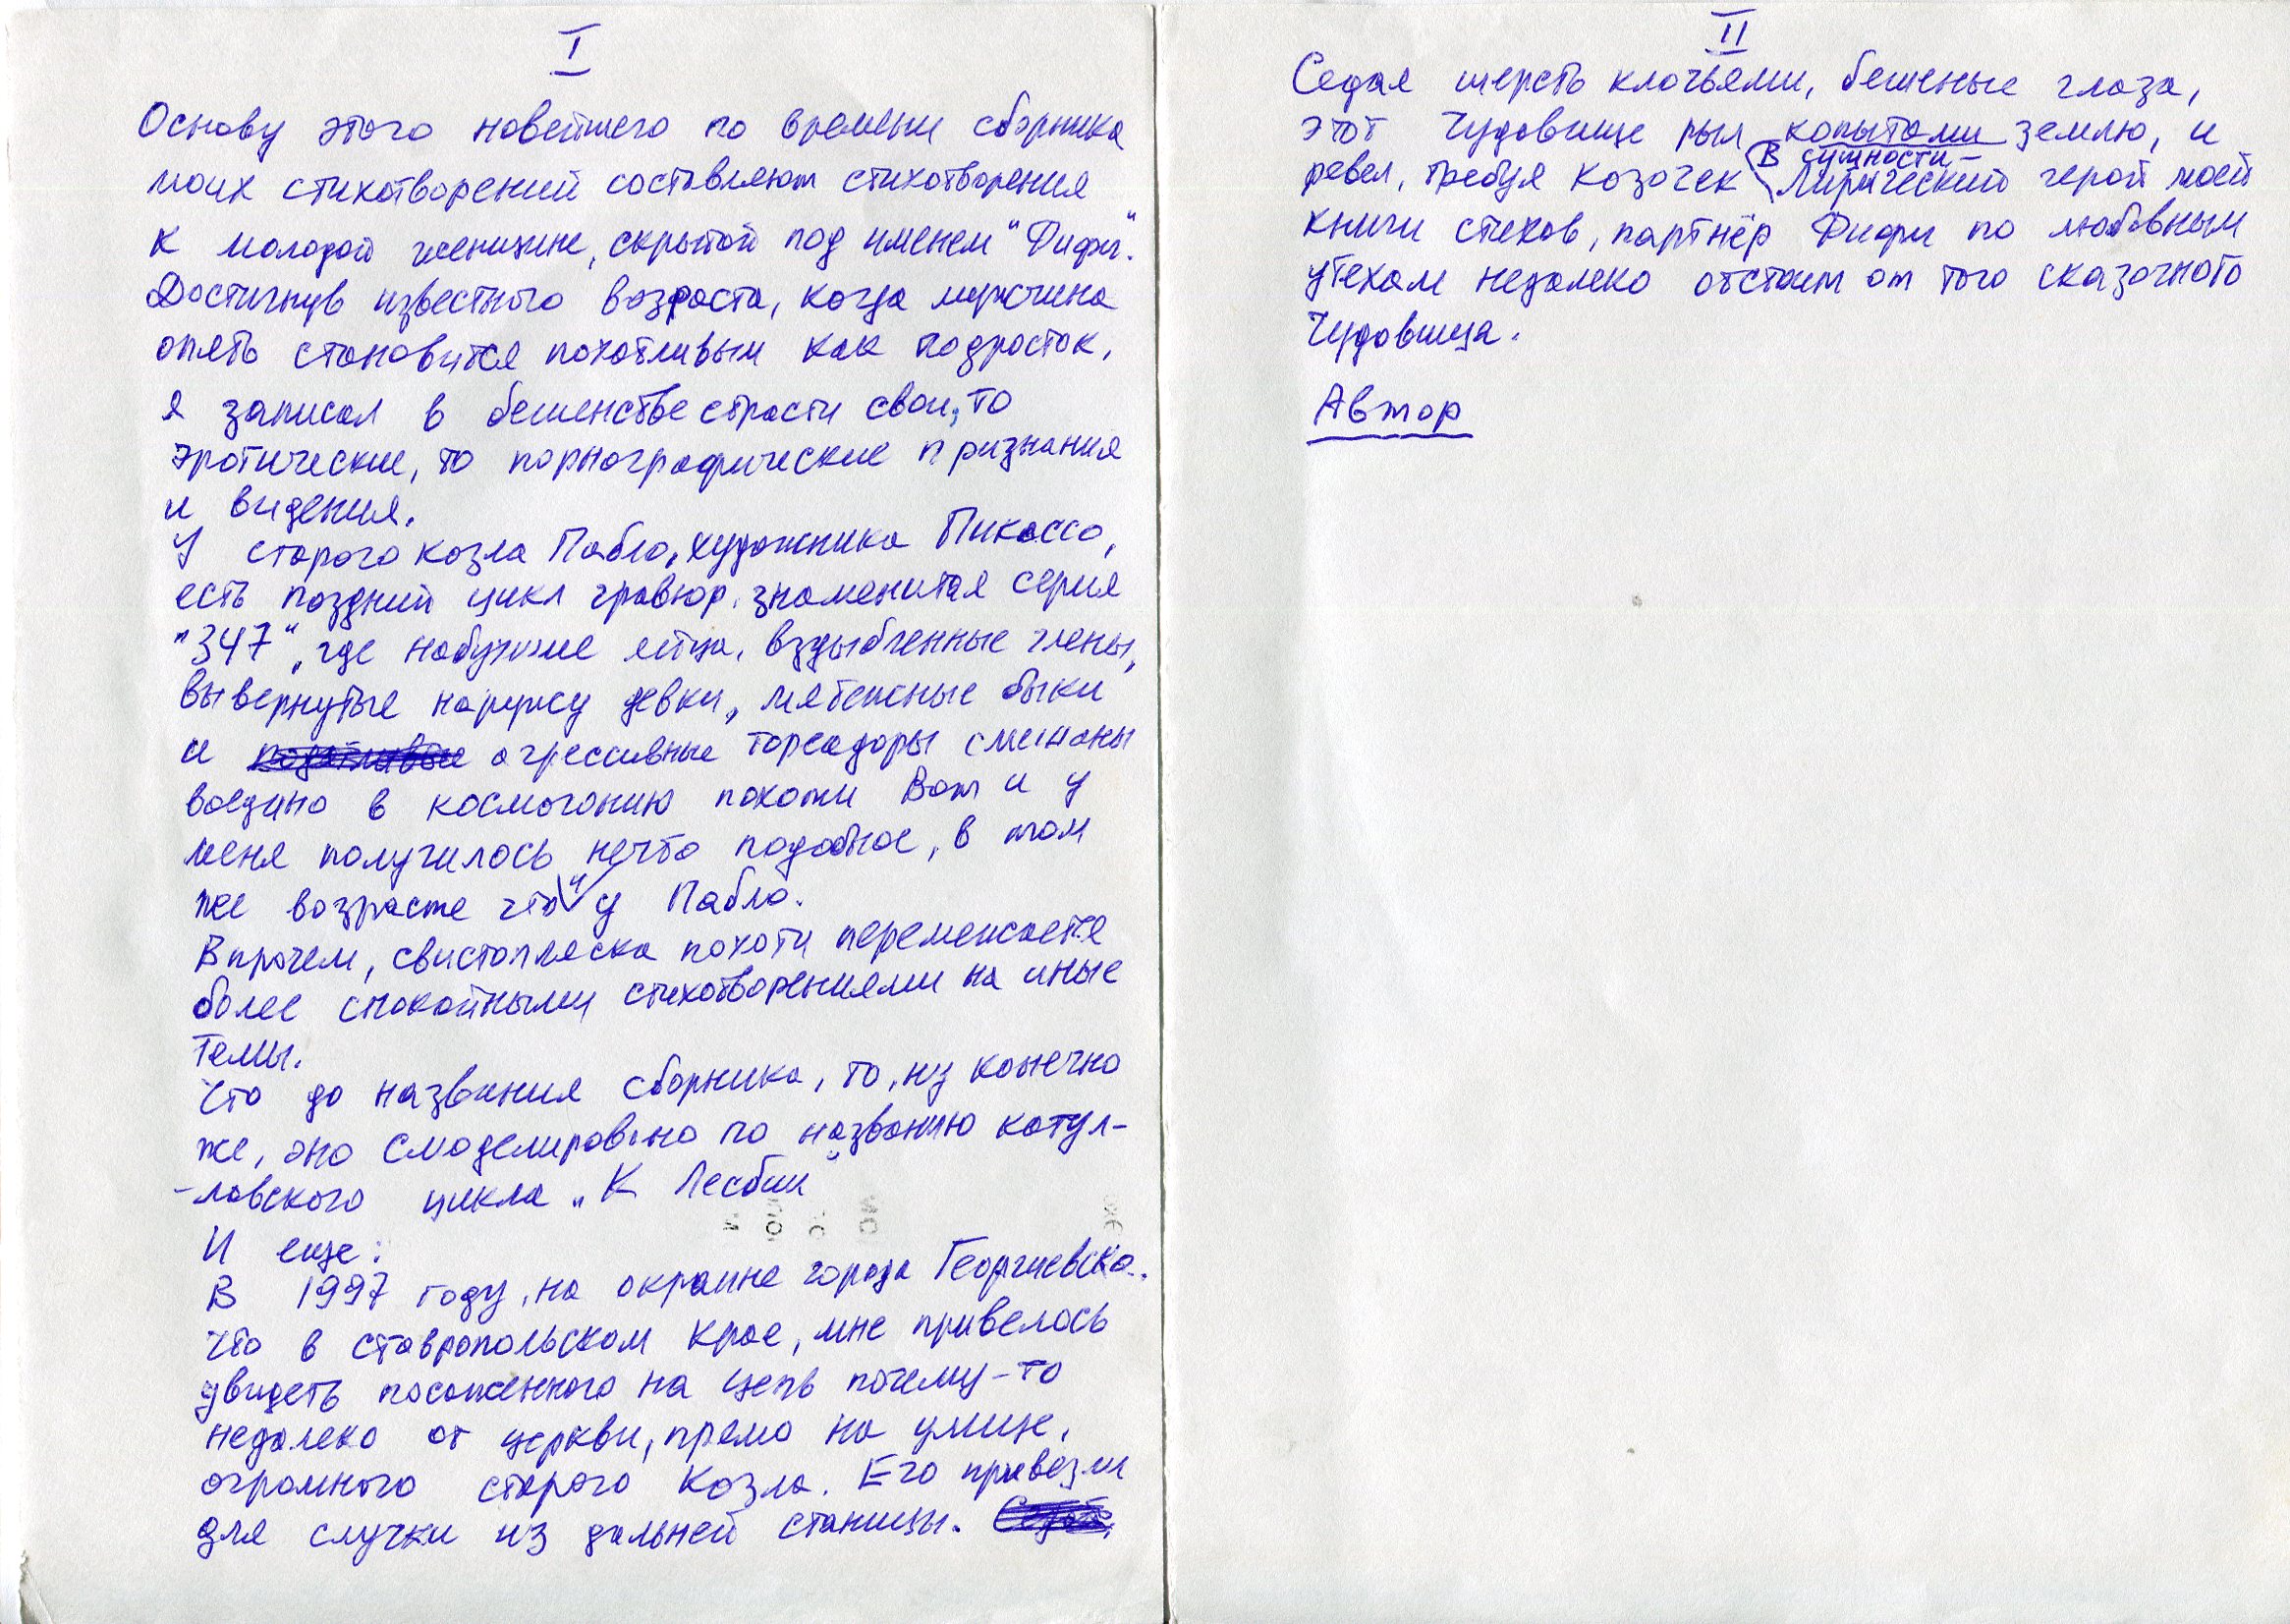 I
Основу этого новейшего по времени сборника
моих стихотворений составляют стихотворения
к молодой женщине, скрытой под именем "Фифи".
Достигнув известного возраста, когда мужчина
опять становится похотливым как подросток,
я записал в бешенстве страсти свои, то
эротические, то порнографические признания
и видения.
У старого козла Пабло, художника Пикассо,
есть поздний цикл гравюр, знаменитая серия
"347", где набухшие яйца, вздыбленные члены,
вывернутые наружу девки, мятежные быки
и агрессивные тореадоры смешаны
воедино в космогонию похоти Вот и у
меня получилось нечто подобное, в том
же возрасте что и у Пабло.
Впрочем, свистопляска похоти перемежается
более спокойными стихотворениями на иные
темы.
Что до названия сборника, то, ну конечно
же, оно смоделировано по названию катул-
-ловского цикла "К Лесбии"
И еще:
В 1997 году, на окраине города Георгиевска,
что в ставропольском крае, мне привелось
увидеть посаженного на цепь почему-то
недалеко от церкви, прямо на улице,
огромного старого козла. Его привезли
для случки из дальней станицы.
II
Седая шерсть клочьями, бешеные глаза,
этот Чудовище рыл копытами землю, и
ревел, требуя козочек В сущности – Лирический герой моей
книги стихов, партнёр Фифи по любовным
утехам недалеко отстоит от того сказочного
Чудовища.
Автор